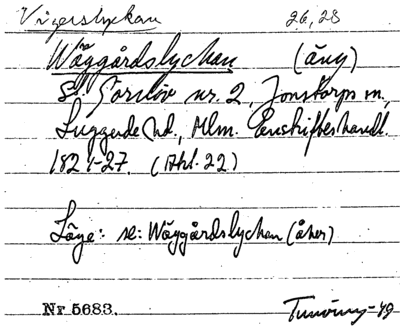 Vigerslyckan 26, 28
Wäggårdslychan (äng)
St. Görslöv nr. 2, Jonstorps sn,
Luggude hd., Mlm. Enskifteshandl.
1824-27. (Akt. 22)
Läge: se: Wäggårdslychan (åker)
Nr 5683.
-49